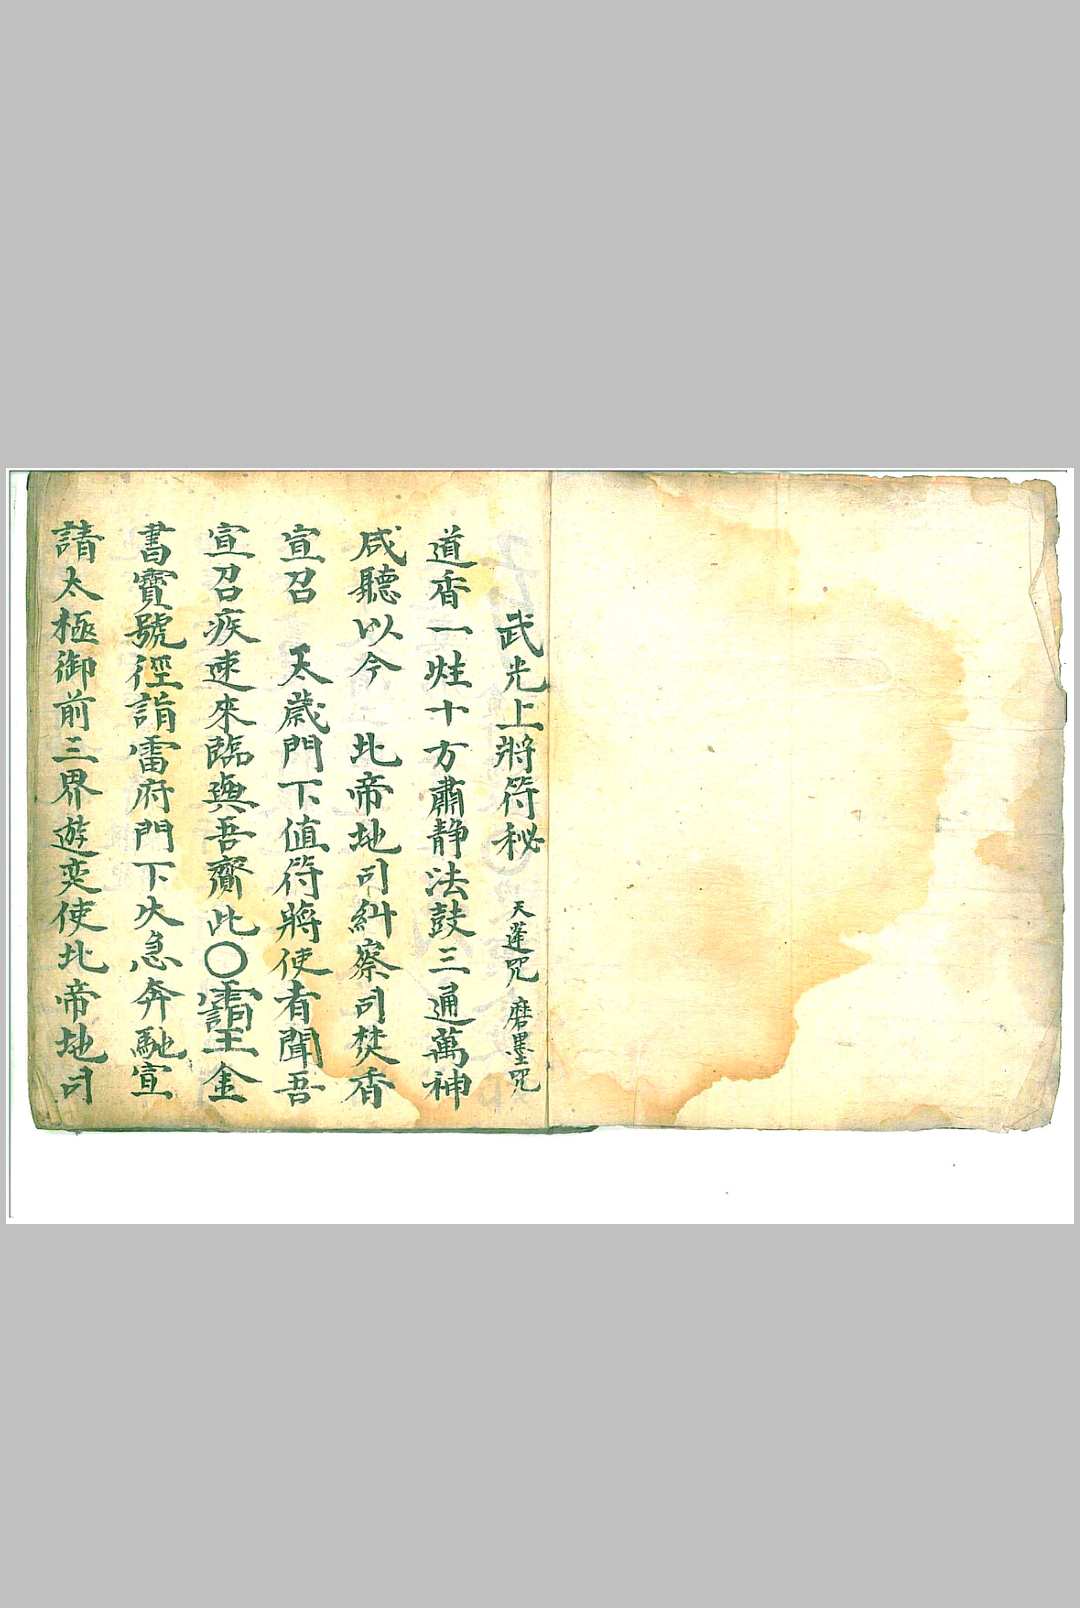 武光上將符秘 天蓬咒 磨墨咒
道香一炷十方肅静法鼓三通萬神
咸聽以今 北帝地司糾察司焚香
宣召 太歲門下值符將使者聞吾
宣召疾速來臨與吾齎此〇王金
書寶號徑詣雷府門下火急奔馳宣
請太極御前三界遊奕使北帝地司